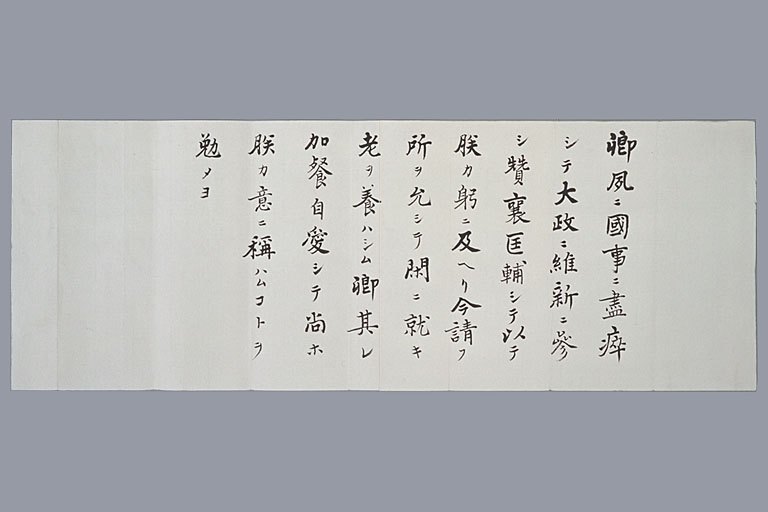 卿夙ニ國事ニ盡瘁
シテ大政ニ維新ニ參
シ贊襄匡輔シテ以テ
朕カ躬ニ及ヘリ今請フ
所ヲ允シテ閑ニ就キ
老ヲ養ハシム卿其レ
加餐自愛シテ尚ホ
朕カ意ニ稱ハムコトヲ
勉メヨ